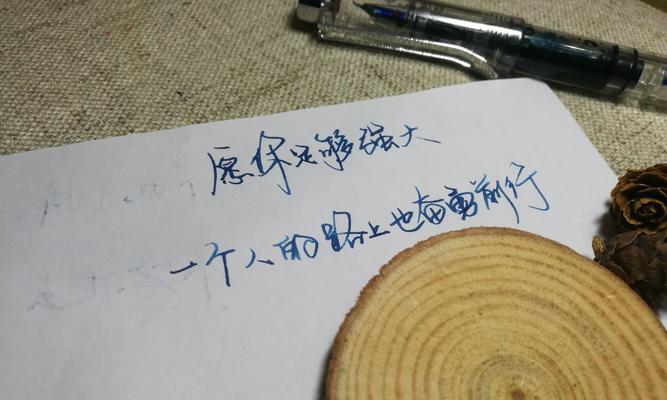 愿你足够强大
一个人的路上也奋勇前行